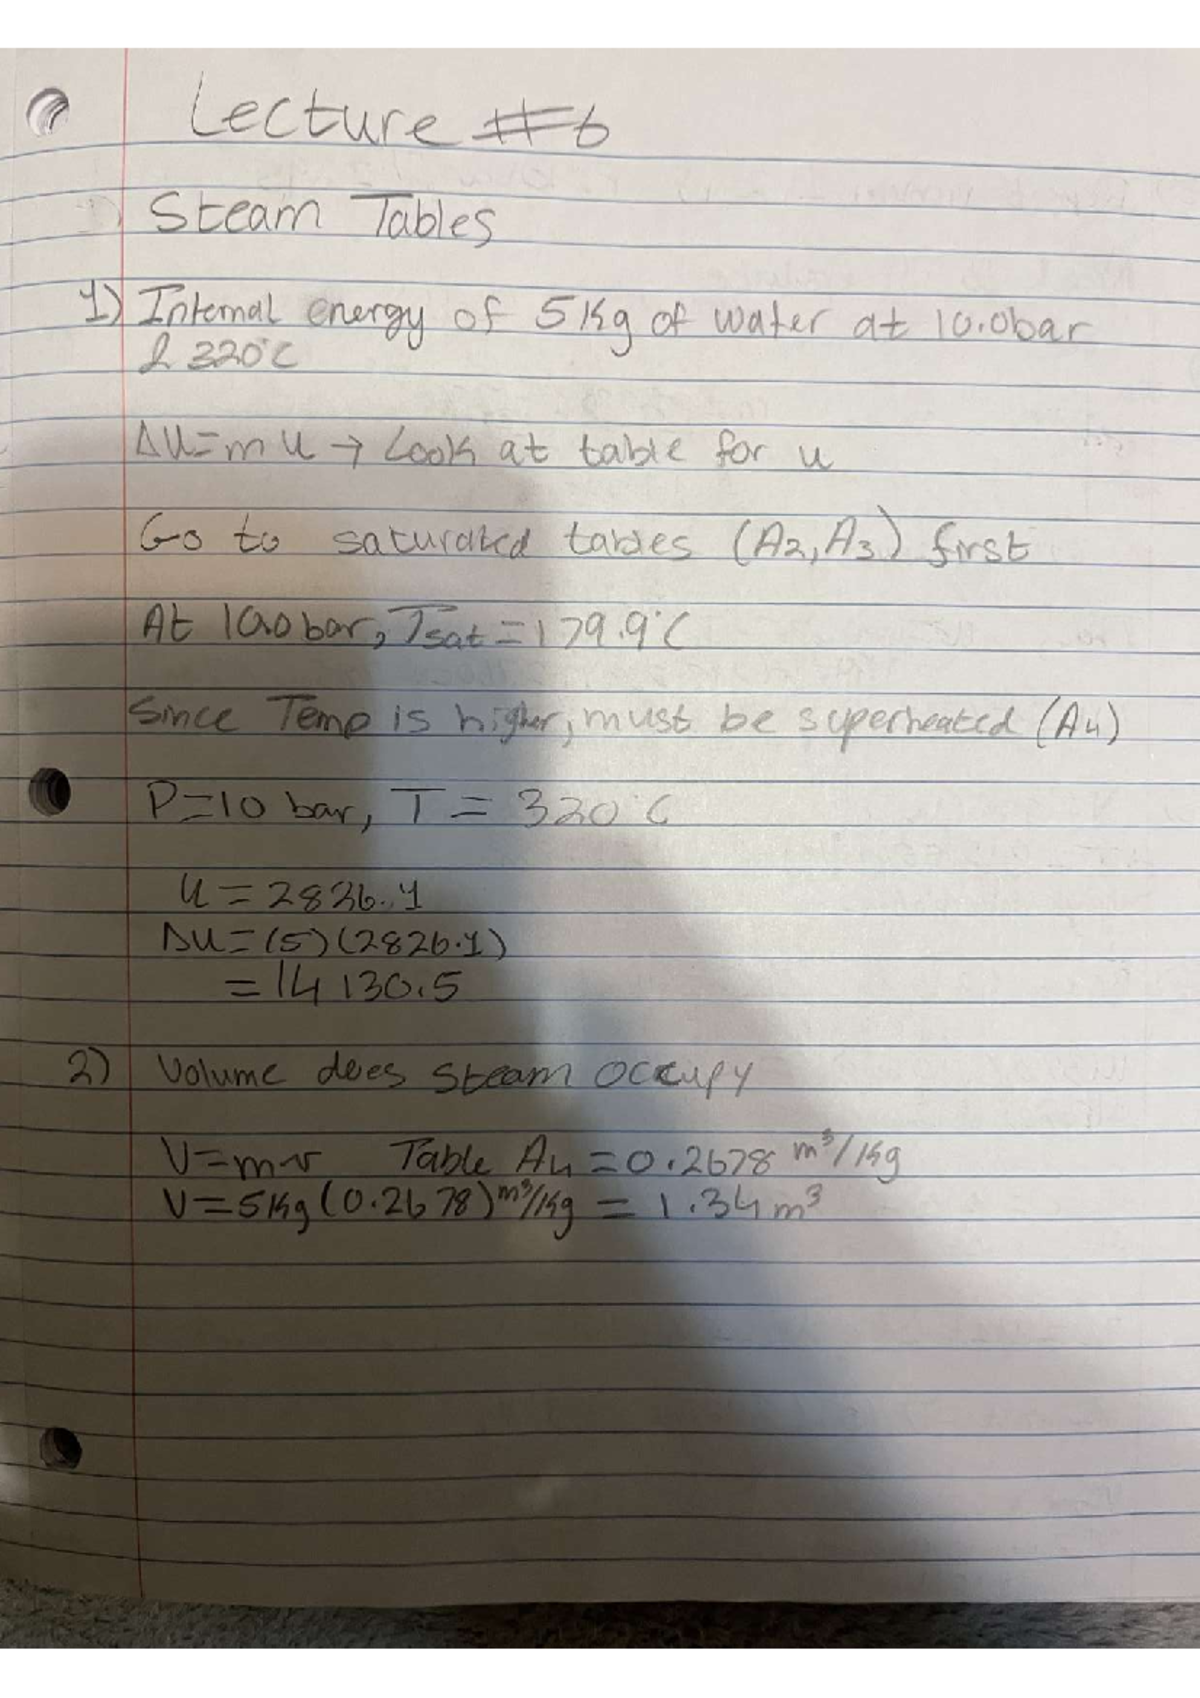 Lecture #6
Steam Tables
1) Internal energy of 5 Kg of water at 10.0bar
& 320°C
ΔU=mu → Look at table for u
Go to saturated tables (A2,A3) first
At 10.0bar, Tsat=179.9°C
Since Temp is higher, must be superheated (A4)
P=10 bar, T= 320°C
u=2826.1
ΔU=(5)(2826.1)
=14130.5
2) Volume does steam occupy
V=mv Table A4=0.2678 m³/Kg
V=5Kg(0.2678)m³/Kg = 1.34m³